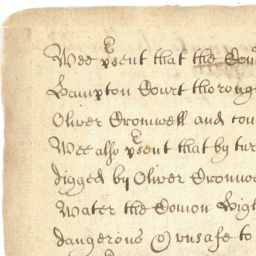 Wee psent that the Com
Hampton Court thoroug
Oliver Cromwell and con
Wee also psent that by tur
digged by Oliver Cromw
Water the Comon High
dangerous & unsafe to